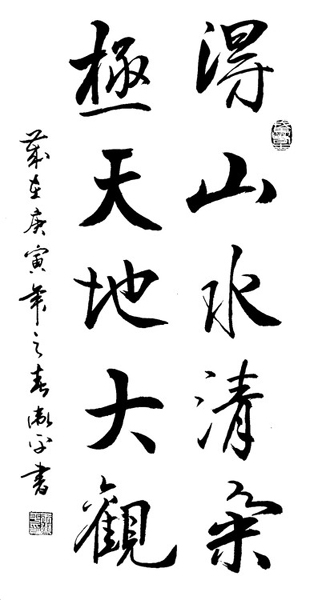 得山水清氣
極天地大觀
歲在庚寅年之春書